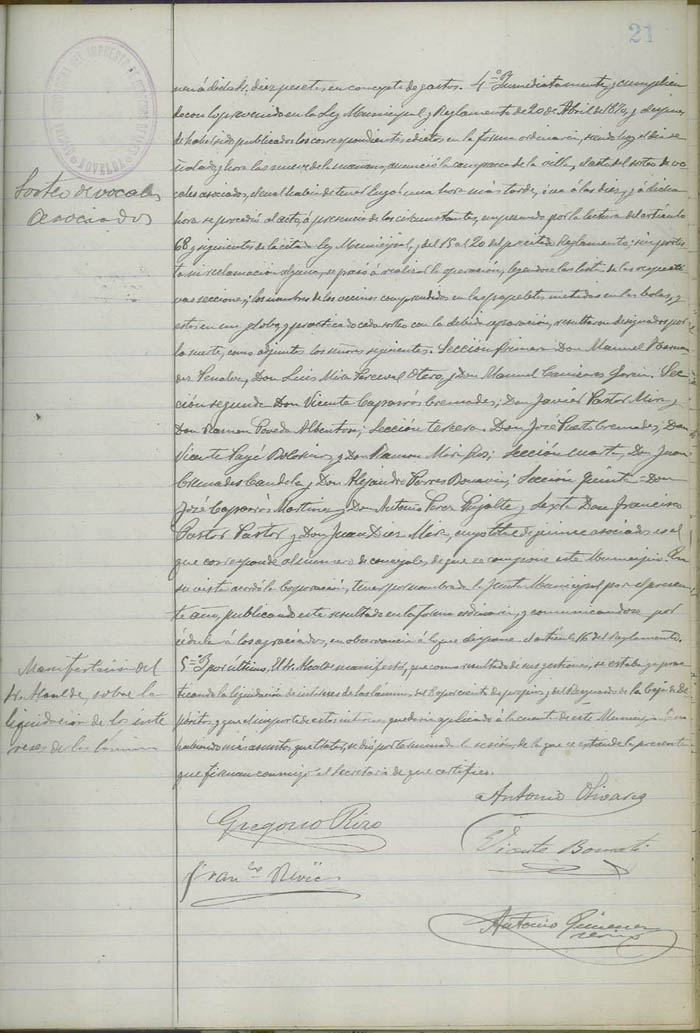 21
NOVELDA
Sorteo de vocales
asociados
diez pesetas en concepto de gastos. 4º Inmediatamente, y cumplien
do con lo prevenido en la Ley Municipal y Reglamento de 20 de Abril de 1870, y despues
de haber sido publicados los correspondientes edictos en la forma ordinaria, siendo hoy el dia se
ñalado y hora las nueve de la mañana, anunció la campana de la villa, el acto del sorteo de vo
cales asociados, el cual habia de tener lugar una hora más tarde, ó sea á las diez, y á dicha
hora se procedió al acto, á presencia de los circunstantes, empezando por la lectura del artículo
68 y siguientes de la citada ley Municipal, y del 15 al 20 del precitado Reglamento; sin protes
ta ni reclamacion alguna, se pasó á realizar la operación, leyendose las listas de las respecti
vas secciones; los nombres de los vecinos comprendidos en las papeletas metidas en las bolas, y
estas en un globo, y practicado cada sorteo con la debida separación, resultaron designados por
la suerte, como adjuntos los señores siguientes. Sección primera Don Manuel
Penalva, Don Luis Mira Perceval Otero, y Don Manuel Sec
ción segunda Don Vicente Caparrós Cremades; Don Javier Pastor Mira y
Don Ramon Poveda Abentosa; Sección tercera. Don José Cremades, Don
Vicente Payá y Don Ramon Mira; Sección cuarta, Don Juan
Cremades Candela y Don Alejandro Torres; Sección Quinta = Don
José Caparrós Martinez y Don Antonio Perez Pujalte y Sexta Don Francisco
Pastor Pastor y Don Juan Diez Mira, cuyo total de quince asociados es el
que corresponde al numero de concejales, de que se compone este Municipio. En
su vista acordó la Corporación, tener por nombrada la Junta Municipal por el presen
te año, publicando este resultado en la forma ordinaria, y comunicandose por
cédula á los agraciados, en observancia á lo que dispone el artículo 16 del Reglamento.
Manifestación del
Sr. Alcalde, sobre la
liquidación de los inte
reses de las láminas
5º Y por ultimo, El Sr. Alcalde manifestó, que como resultado de sus gestiones, se estaba prac
ticando la liquidación de intereses de las láminas del 80 por ciento de propios y del Resguardo de la Caja de De
pósitos, y que el importe de estos intereses quedaria aplicado á la cuenta de este Municipio.
habiendo más asuntos que tratar, se dió por terminada la sesión, de la que se extiende la presente
que firman conmigo el Secretario de que certifico.
Antonio
Gregorio Rizo
Vicente
Franco
Antonio Gimenez